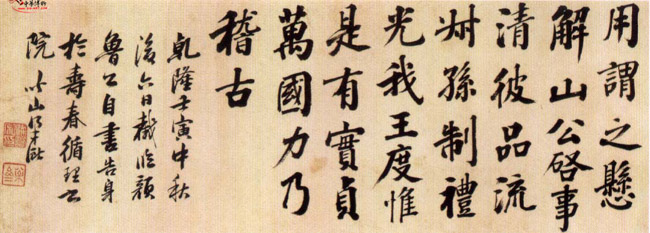 用謂之懸
解山公啓事
清彼品流
叔孫制禮
光我王度惟
是有實貞
萬國力乃
稽古
乾隆壬寅中秋
後六日臨顏
魯公自書告身
於壽春循理書
院 山